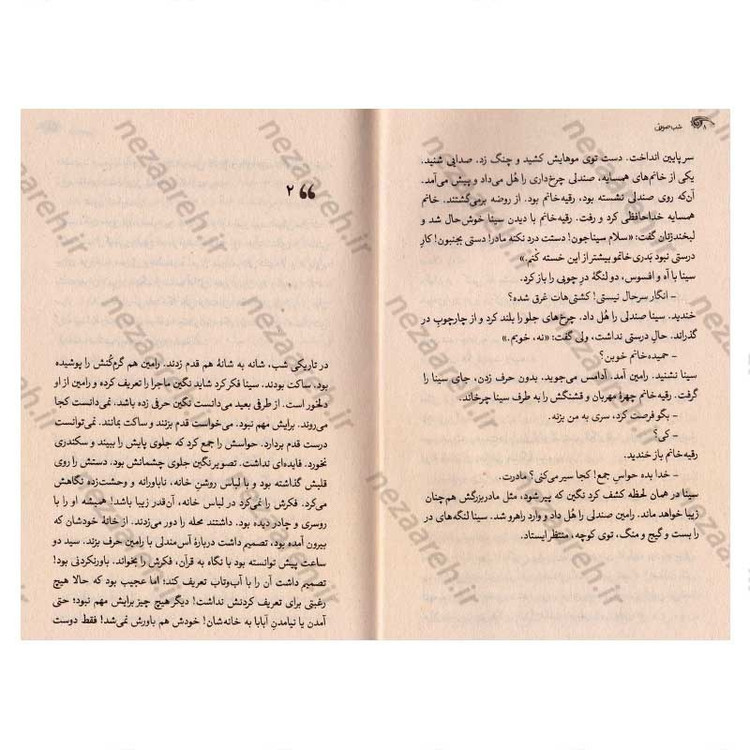 ۸ شب صورتی
سر پایین انداخت. دست توی موهایش کشید و چنگ زد. صدایی شنید.
یکی از خانم‌های همسایه، صندلی چرخ‌داری را هُل می‌داد و پیش می‌آمد.
آن‌که روی صندلی نشسته بود، رقیه‌خانم بود. از روضه برمی‌گشتند. خانم
همسایه خداحافظی کرد و رفت. رقیه‌خانم با دیدن سینا خوش‌حال شد و
لبخندزنان گفت: «سلام سیناجون! دستت درد نکنه مادر! دستی بجنبون! کارِ
درستی نبود بَدری‌خانمو بیشتر از این خسته کنم.»
سینا با آه و افسوس، دو لنگهٔ درِ چوبی را باز کرد.
- انگار سرحال نیستی! کشتی‌هات غرق شده؟
خندید. سینا صندلی را هُل داد. چرخ‌های جلو را بلند کرد و از چارچوبِ در
گذراند. حالِ درستی نداشت، ولی گفت: «نه، خوبم.»
- حمیده‌خانم خوبن؟
سینا نشنید. رامین آمد. آدامس می‌جوید. بدون حرف زدن، جای سینا را
گرفت. رقیه‌خانم چهرهٔ مهربان و قشنگش را به طرف سینا چرخاند.
- بگو فرصت کرد، سری به من بزنه.
- کی؟
رقیه‌خانم باز خندید.
- خدا بده حواسِ جمع! کجا سیر می‌کنی؟ مادرت.
سینا در همان لحظه کشف کرد نگین که پیر شود، مثل مادربزرگش هم‌چنان
زیبا خواهد ماند. رامین صندلی را هُل داد و وارد راهرو شد. سینا لنگه‌های در
را بست و گیج و منگ، توی کوچه، منتظر ایستاد.
۲
در تاریکی شب، شانه به شانهٔ هم قدم زدند. رامین هم گرم‌کُنش را پوشیده
بود. ساکت بودند. سینا فکر کرد شاید نگین ماجرا را تعریف کرده و رامین از او
دلخور است. از طرفی بعید می‌دانست نگین حرفی زده باشد. نمی‌دانست کجا
می‌روند. برایش مهم نبود. می‌خواست قدم بزنند و ساکت بمانند. نمی‌توانست
درست قدم بردارد. حواسش را جمع کرد که جلوی پایش را ببیند و سکندری
نخورد. فایده‌ای نداشت. تصویر نگین جلوی چشمانش بود. دستش را روی
قلبش گذاشته بود و با لباس روشنِ خانه، ناباورانه و وحشت‌زده نگاهش
می‌کرد. فکرش را نمی‌کرد در لباس خانه، آن‌قدر زیبا باشد! همیشه او را با
روسری و چادر دیده بود. داشتند محله را دور می‌زدند. از خانهٔ خودشان که
بیرون آمده بود، تصمیم داشت دربارهٔ آس‌مندلی با رامین حرف بزند. سید دو
ساعت پیش توانسته بود با نگاه به قرآن، فکرش را بخواند. باورنکردنی بود!
تصمیم داشت آن را با آب‌وتاب تعریف کند؛ اما عجیب بود که حالا هیچ
رغبتی برای تعریف کردنش نداشت! دیگر هیچ چیز برایش مهم نبود؛ حتی
آمدن یا نیامدنِ آبابا به خانه‌شان! خودش هم باورش نمی‌شد! فقط دوست
nezaareh.ir